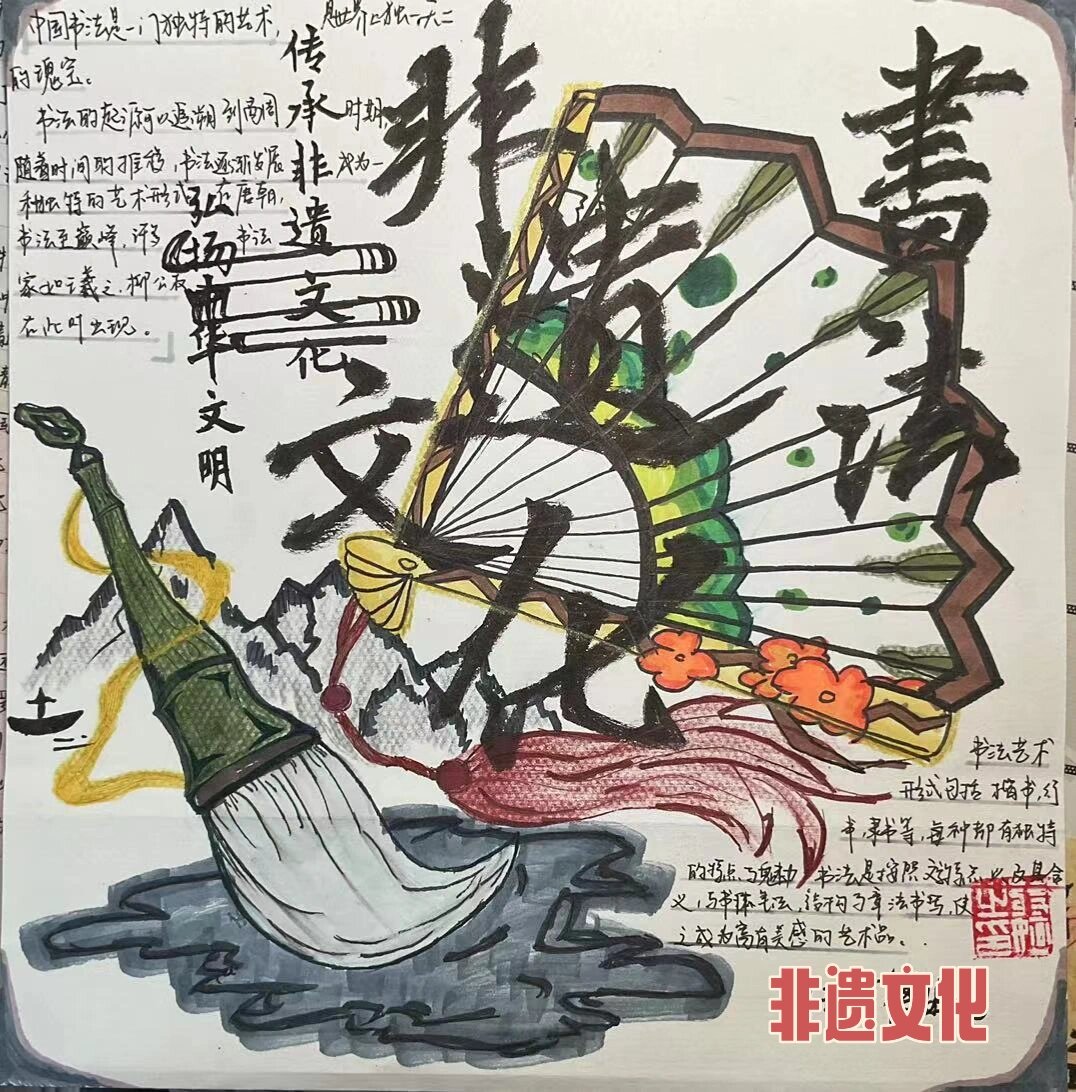 中国书法是一门独特的艺术，是世界上独一无二
的瑰宝。
书法的起源可以追溯到商周时期，
随着时间的推移，书法逐渐发展成为一
种独特的艺术形式，在唐朝，
书法至巅峰，许多书法
家如王羲之、柳公权
在此时出现。
传承非遗文化
弘扬中华文明
書法
非遗
文化
书法艺术
形式包括楷书，行
书，隶书等，每种却有独特
的特点与魅力，书法是按照文字特点及其含
义，与书体笔法、结构与章法书写，使
之成为富有美感的艺术品。
非遗文化